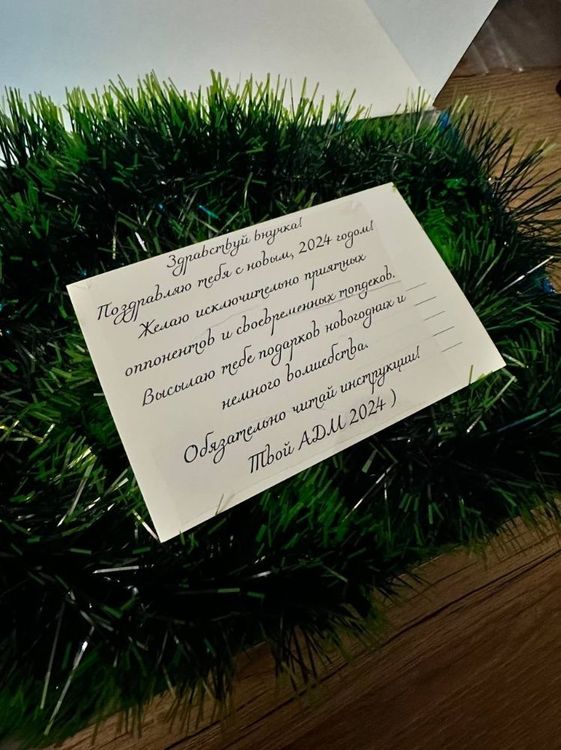 Здравствуй внучка!
Поздравляю тебя с новым, 2024 годом!
Желаю исключительно приятных
оппонентов и своевременных топдеков.
Высылаю тебе подарков новогодних и
немного волшебства.
Обязательно читай инструкции!
Твой АДМ 2024 )